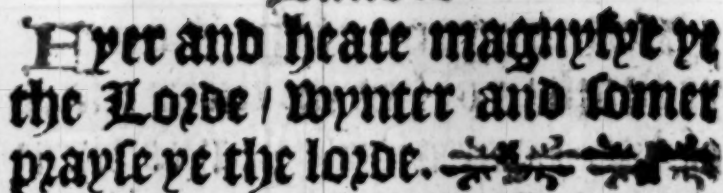 Fyer and heate magnyfye ye
the Lorde / wynter and somer
prayse ye the lorde.